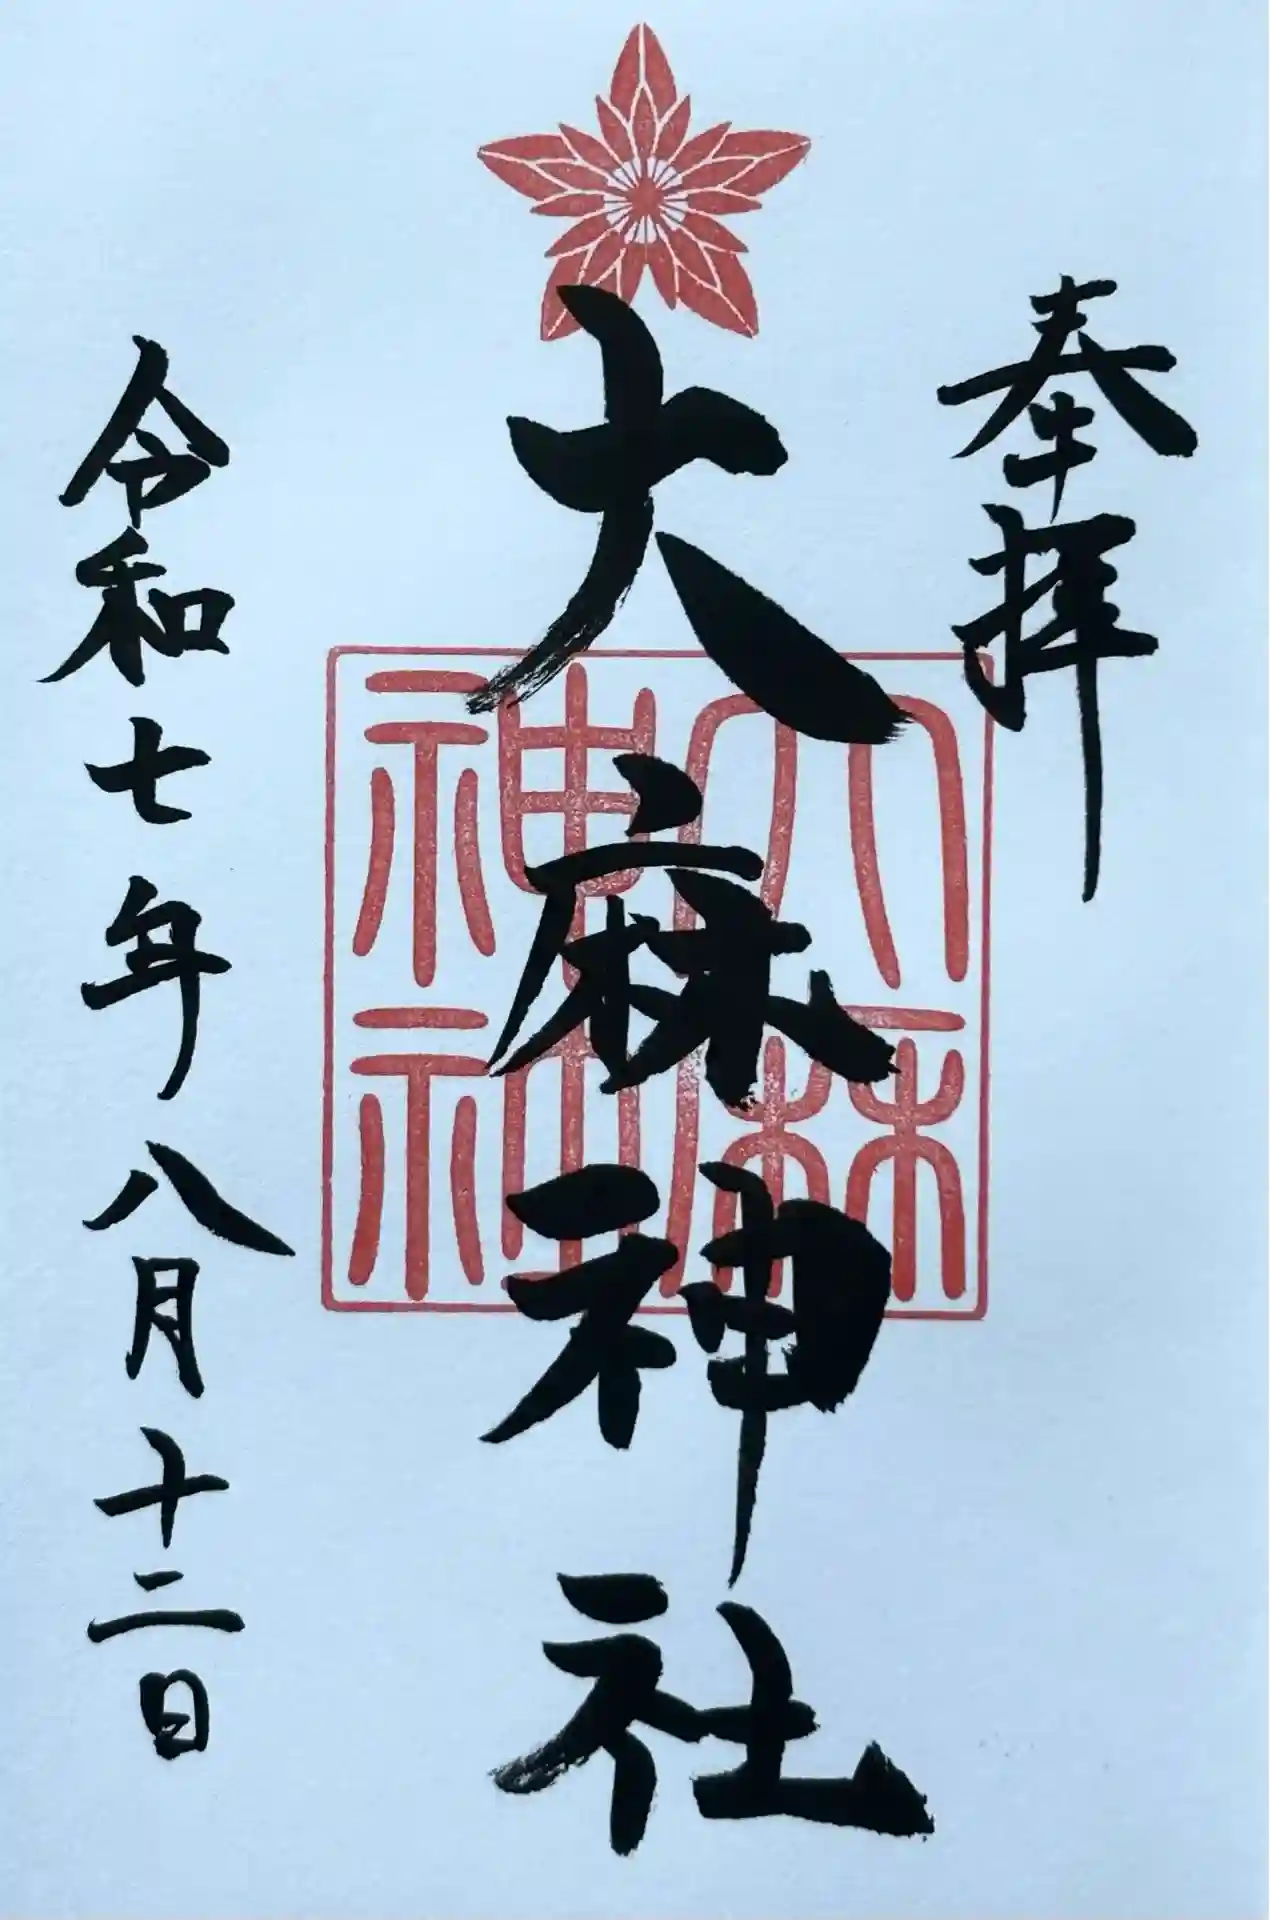 奉拝
大麻神社
大麻神社
令和七年八月十二日